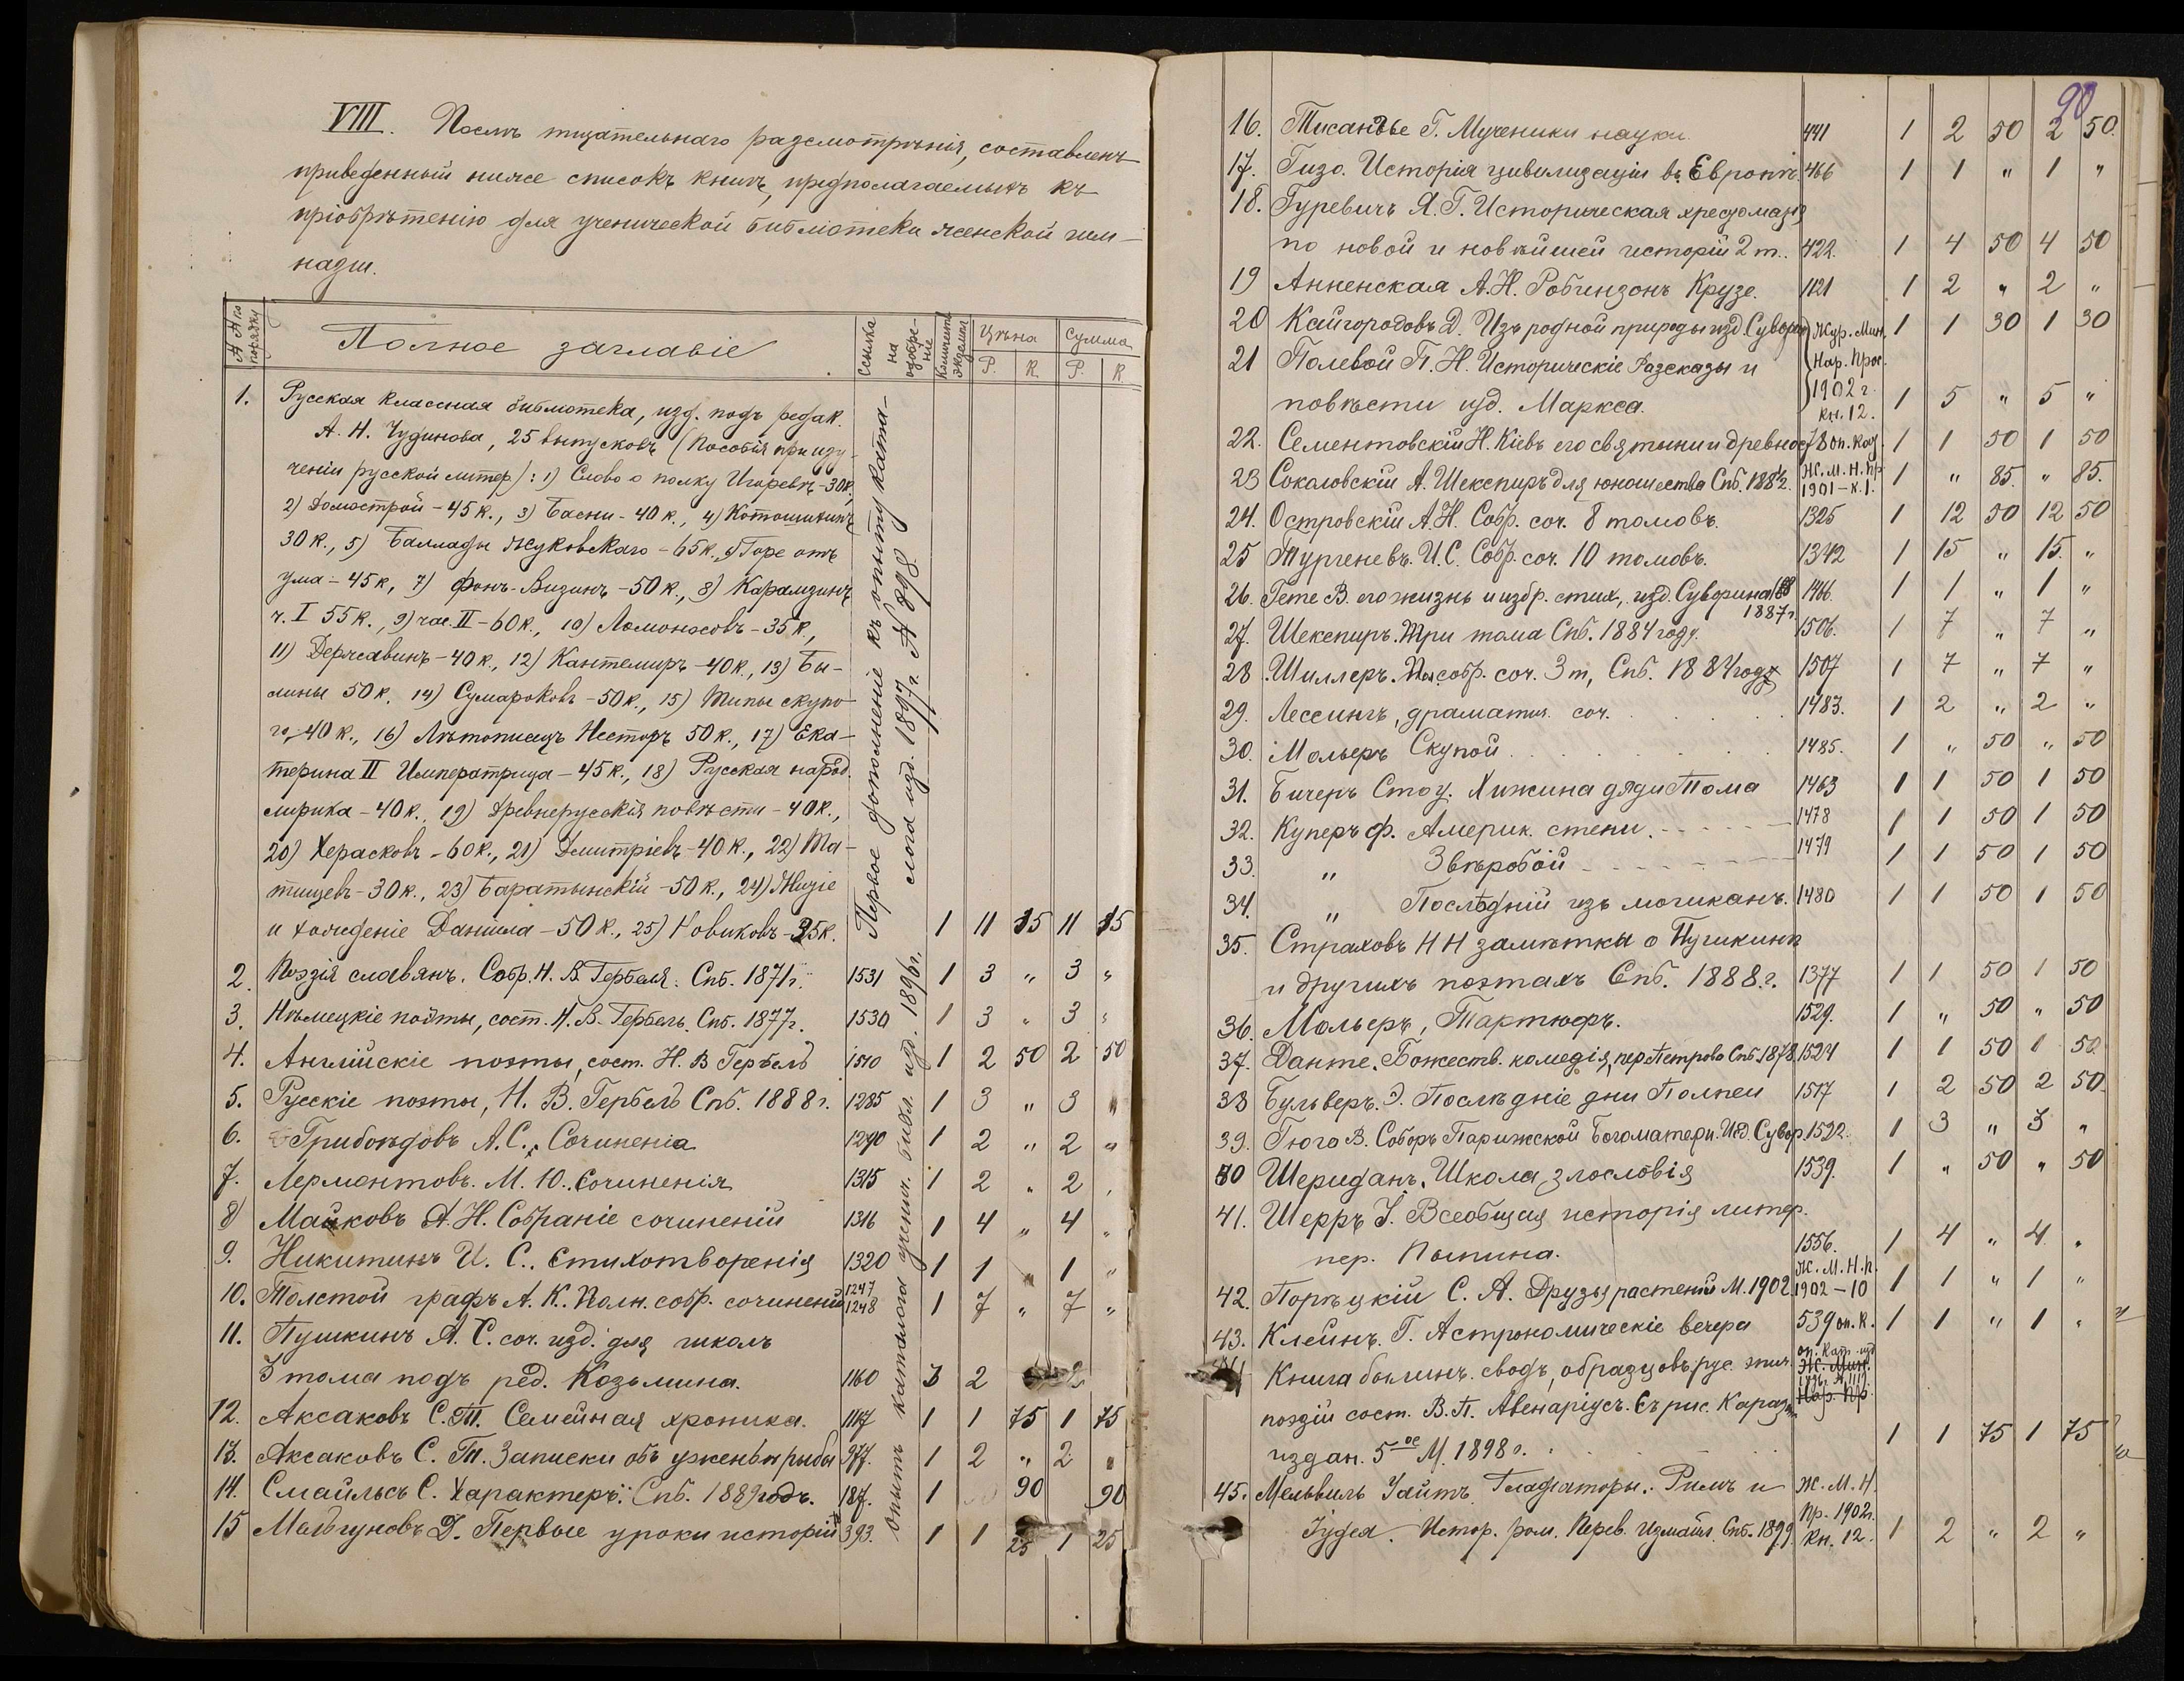 VIII. Послѣ тщательнаго разсмотрѣнія, составленъ
приведенный ниже списокъ книгъ, предполагаемыхъ къ
пріобрѣтенію для ученической библіотеки женской гим-
назіи.
№№ по порядку | Полное заглавіе | Ссылка на одобре-ніе | Количеств. экземпл. | Цѣна Р. К. | Сумма Р. К.
1. Русская классная библіотека, изд. подъ редак.
А. Н. Чудинова, 25 выпусковъ (Пособія при изу-
ченіи русской литер.): 1) Слово о полку Игоревѣ - 30к.,
2) Домострой - 45 к., 3) Басни - 40 к., 4) Котошихинъ
30 к., 5) Баллады Жуковскаго - 65к., 6) Горе отъ
ума - 45к, 7) Фонъ-Визинъ - 50 к., 8) Карамзинъ
ч. I 55 к., 9) час. II - 60 к., 10) Ломоносовъ - 35 к,
11) Державинъ - 40 к., 12) Кантемиръ - 40 к., 13) Бы-
лины 50 к. 14) Сумароковъ - 50к., 15) Типы скупо-
го - 40 к., 16) Лѣтописецъ Несторъ 50 к., 17) Ека-
терина II Императрица - 45 к., 18) Русская народ.
лирика - 40 к., 19) Древнерусскія повѣсти - 40 к.,
20) Херасковъ - 60 к., 21) Дмитріевъ - 40 к., 22) Та-
тищевъ - 30 к., 23) Баратынскій - 50 к., 24) Житіе
и хожденіе Даніила - 50 к., 25) Новиковъ - 35к. 1 11 15 11 15
Первое дополненіе къ опыту ката-
лога изд. 1897 г. № 898
2. Поэзія славянъ. Собр. Н. В. Гербеля. Спб. 1871г. 1531 1 3 " 3 "
3. Нѣмецкіе поэты, сост. Н. В. Гербель. Спб. 1877г. 1530 1 3 " 3 "
4. Англійскіе поэты, сост. Н. В Гербель 1510 1 2 50 2 50
5. Русскіе поэты, Н. В. Гербель Спб. 1888 г. 1285 1 3 " 3 "
6. Грибоѣдовъ А. С., Сочиненія 1290 1 2 " 2 "
7. Лермонтовъ. М. Ю. Сочиненія 1315 1 2 " 2 "
8) Майковъ А. Н. Собраніе сочиненій 1316 1 4 " 4 "
9. Никитинъ И. С. Стихотворенія 1320 1 1 " 1 "
10. Толстой графъ А. К. Полн. собр. сочиненій 1247 1248 1 7 " 7 "
11. Пушкинъ А. С. соч. изд. для школъ
3 тома подъ ред. Козьмина. 1160 3 2 2
12. Аксаковъ С. Т. Семейная хроника. 1117 1 1 75 1 75
13. Аксаковъ С. Т. Записки объ уженьи рыбы 977. 1 2 " 2 "
14. Смайльсъ С. Характеръ. Спб. 1889 годъ. 187. 1 90 90
15 Мальгуновъ Д. Первые уроки исторіи 393. 1 1 25 1 25
Опытъ каталога ученич. библ. изд. 1896 г.
90
16. Тисандье Г. Мученики науки 441 1 2 50 2 50.
17. Гизо. Исторія цивилизаціи въ Европѣ. 466 1 1 " 1 "
18. Гуревичъ Я. Г. Историческая хрестоматія
по новой и новѣйшей исторіи 2 т. 422. 1 4 50 4 50
19 Анненская А. Н. Робинзонъ Крузе. 1121 1 2 " 2 "
20 Кайгородовъ Д. Изъ родной природы изд. Суворин Жур. Мин. 1 1 30 1 30
21 Полевой П. Н. Историческіе разсказы и Нар. Прос.
повѣсти изд. Маркса. 1902 г. кн. 12. 1 5 " 5 "
22. Сементовскій Н. Кіевъ его святыни и древнос 78 оп. кат. 1 1 50 1 50
23 Соколовскій А. Шекспиръ для юношества Спб. Ж. М. Н. Пр 1901 - X. 1. 1 " 85. " 85.
24. Островскій А. Н. Собр. соч. 8 томовъ. 1325 1 12 50 12 50
25 Тургеневъ. И. С. Собр. соч. 10 томовъ. 1342 1 15 " 15. "
26. Гете В. его жизнь и избр. стих, изд. Суворина 1887г. 1466. 1 1 " 1 "
27. Шекспиръ. Три тома Спб. 1884 году. 1506. 1 7 " 7 "
28. Шиллеръ. Пол. собр. соч. 3 т, Спб. 1884 году 1507 1 7 " 7 "
29. Лессингъ, драматич. соч. 1483. 1 2 " 2 "
30. Мольеръ Скупой 1485. 1 " 50 " 50
31. Бичеръ Стоу. Хижина дяди Тома 1463 1 1 50 1 50
32. Куперъ Ф. Америк. степи. 1478 1 1 50 1 50
33. " Звѣробой 1479 1 1 50 1 50
34. " Послѣдній изъ могиканъ. 1480 1 1 50 1 50
35. Страховъ Н Н замѣтки о Пушкинѣ
и другихъ поэтахъ Спб. 1888. г. 1377 1 1 50 1 50
36. Мольеръ, Тартюфъ. 1529. 1 " 50 " 50
37. Данте. Божеств. комедія, пер. Петрова Спб. 1878. 1524 1 1 50 1 50
38 Бульверъ. Э. Послѣдніе дни Помпеи 1517 1 2 50 2 50.
39. Гюго В. Соборъ Парижской Богоматери. Изд. Сувор. 1522. 1 3 " 3 "
40 Шериданъ. Школа злословія 1539. 1 " 50 " 50
41. Шерръ І. Всеобщая исторія литер.
пер. Пыпина. 1556. 1 4 " 4 "
42. Порѣцкій С. А. Друзья растеній М. 1902 Ж. М. Н. п. 1902 - 10 1 1 " 1 "
43. Клейнъ. Г. Астрономическіе вечера 539 оп. к. 1 1 " 1 "
Книга былинъ. сводъ, образцовъ рус. эпич. оп. кат. изд Ж. Мин.
поэзіи сост. В. П. Авенаріусъ. Съ рис. Каразин 1896. № 1119. Нар. Пр
издан. 5ое М. 1898 г. 1 1 75 1 75
45. Мельвиль Уайтъ Гладіаторы. Римъ и Ж. М. Н.
Іудея. Истор. ром. Перев. Измайл. Спб. 1899. Пр. 1902г. Кн. 12. 1 2 " 2 "